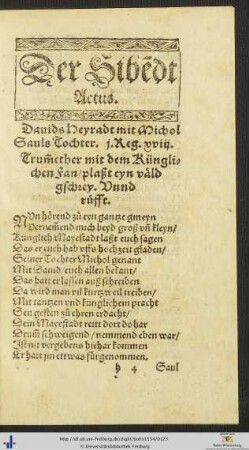 Der Sibēdt
Actus.
Davids Heyradt mit Michol
Sauls Tochter. j. Reg. xviij.
Trum̄ether mit dem Künglichen
Fan/ plaßt eyn väld
gschrey. Vnnd
rüfft.
NVn hörend zů eyn gantze gmeyn
Vernem̄end mich beyd groß vn̄ kleyn/
Künglich Mayestadt laßt euch sagen
Das er euch hab vffs hochzeit gladen/
Seiner Tochter Michol genant
Mit David/ euch allen bekant/
Das hatt er lassen auß schreiben
Da wird man vil kurtzweil treiben/
Mit tantzen vnd künglichem pracht
Den gesten zů ehren erdacht/
Dein Mayestadt reitt dort do har
Drum̄ schweigend/ nemmend eben war/
Ist nit vergebens hiehar kommen
Er hatt jm ettwas fürgenommen.
h 4 Saul
http://dl.ub.uni-freiburg.de/diglit/
© Universitätsbibliothek Freiburg